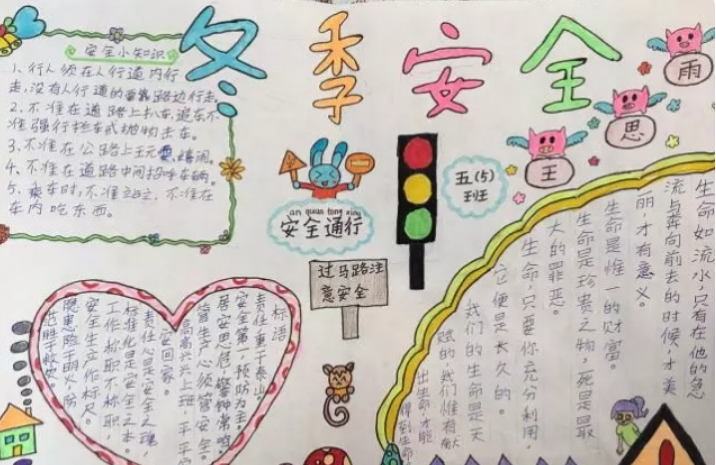 冬季安全
雨
思
王
五(5)
班
安全小知识
1、行人须在人行道内行
走,没有人行道的靠路边行走。
2、不准在道路上扒车、追车、不
准强行拦车或抛物击车。
3、不准在公路上玩耍、嬉闹。
4、不准在道路中间招呼车辆。
5、乘车时,不准站立、不准在
车内吃东西。
an quan tong xing
安全通行
过马路注
意安全
标语
责任重于泰山,
安全第一,预防为主,
居安思危,警钟常鸣,
管生产必须管安全。
高高兴兴上班,平平安
安回家。
责任心是安全之魂,
标准化是安全之本。
工作称职不称职,
安全生产作标尺。
隐患险于明火,防
范胜于救灾
生命如流水,只有在他的急
流与奔向前去的时候,才美
丽,才有意义。
生命是惟一的财富。
生命是珍贵之物,死是最
大的罪恶。
生命,只要你充分利用,
它便是长久的。
我们的生命是天
赋的,我们惟有献
出生命,才能
得到生命